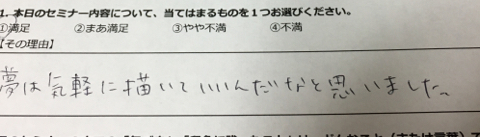 1. 本日のセミナー内容について、当てはまるものを１つお選びください。
①満足 ②まあ満足 ③やや不満 ④不満
【その理由】
夢は気軽に描いていいんだなと思いました。